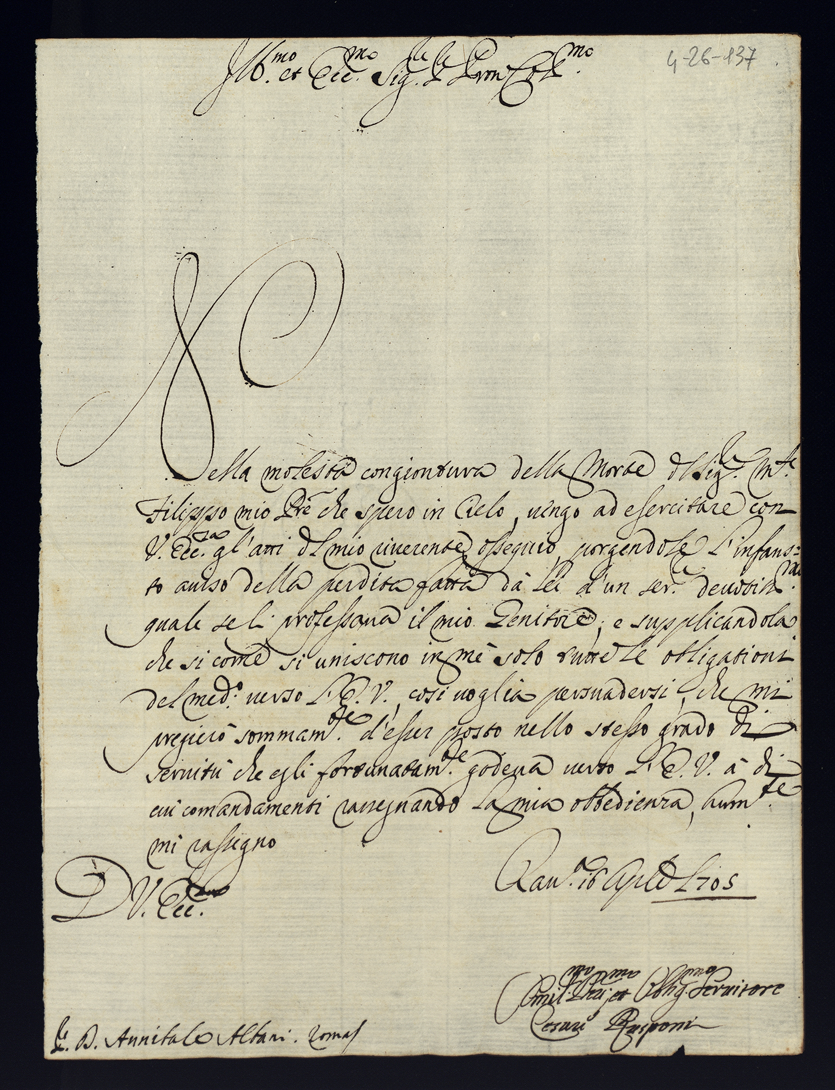 4-26-137
Ill.mo et Ecc.mo Sig.re Sig.re P.rone Col.mo
Nella molesta congiontura della Morte del Sig.re M.se
Filippo mio Pre che spero in Cielo, vengo ad esercitare con
V. Ecc.za gl'atti del mio riverente ossequio, porgendole l'infaus=
to auiso della perdita fatta da lei d'un ser.re deuotiss.mo
quale se li professaua il mio Genitore; e supplicandola
che si come si uniscono in me solo tutte le obligationi
del med.o uerso l'E. V., così uoglia persuadersi, che mi
pregierò sommam.te d'esser posto nello stesso grado di
seruitù che egli fortunatam.te godeua uerso l'E. V. à di
cui comandamenti rassegnando la mia obbedienza, hum.te
mi rassegno
D V. Ecc.za
Rau.a 16 Aprile 1705
Humil.mo Deu.mo et Obblig.mo Seruitore
Cesare Rasponi
S.r D. Annibale Albani. Roma